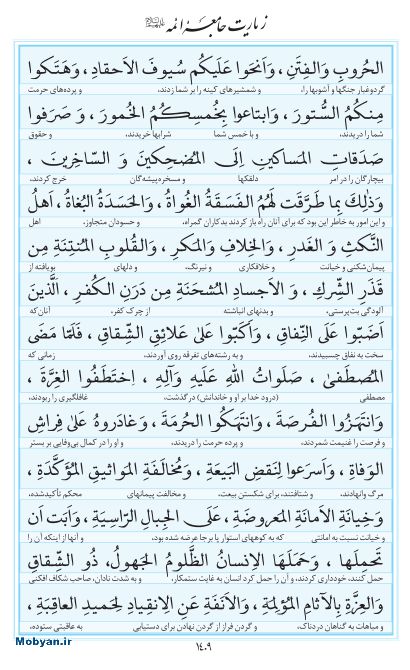 زیارت جامعهٔ ائمه
الحُروبِ وَالفِتَنِ ، وَاَنحَوا عَلَيكُم سُيوفَ الاَحقادِ ، وَهَتَكوا
گردوغبار جنگها و آشوبها را، و شمشیرهای کینه را بر شما زدند، و پرده‌های حرمت
مِنكُمُ السُّتورَ ، وَابتاعوا بِخُمسِكُمُ الخُمورَ ، وَ صَرَفوا
شما را دریدند، و با خمس شما شرابها خریدند، و حقوق
صَدَقاتِ المَساكينِ اِلَى المُضحِكينَ وَ السّاخِرينَ ،
بیچارگان را در امر دلقکها و مسخره پیشه‌گان خرج کردند،
وَذٰلِكَ بِما طَرَّقَت لَهُمُ الفَسَقَةُ الغُواةُ ، وَالحَسَدَةُ البُغاةُ ، اَهلُ
و این امور به خاطر این بود که برای آنان راه باز کردند بدکاران گمراه، و حسودان متجاوز، اهل
النَّكثِ وَ الغَدرِ ، وَالخِلافِ وَالمَكرِ ، وَالقُلوبِ المُنتِنَةِ مِن
پیمان‌شکنی و خیانت و خلافکاری و نیرنگ، و دلهای بویافته از
قَذَرِ الشِّركِ ، وَ الاَجسادِ المُشحَنَةِ مِن دَرَنِ الكُفرِ ، اَلَّذينَ
آلودگی بت‌پرستی، و بدنهای انباشته از چرک کفر، آنان که
اَضَبّوا عَلَى النِّفاقِ ، وَ اَكَبّوا عَلىٰ عَلائِقِ الشِّقاقِ ، فَلَمّا مَضَى
سخت به نفاق چسبیدند، و به رشته‌های تفرقه روی آوردند، زمانی که
المُصطَفىٰ ، صَلَواتُ اللهِ عَلَيهِ وَآلِهِ ، اِختَطَفُوا الغِرَّةَ ،
مصطفی (درود خدا بر او و خاندانش) درگذشت، غافلگیری را ربودند،
وَانتَهَزُوا الفُرصَةَ ، وَانتَهَكُوا الحُرمَةَ ، وَغادَروهُ عَلىٰ فِراشِ
و فرصت را غنیمت شمردند، و پرده حرمت را دریدند، و او را در کمال بی‌وفایی بر بستر
الوَفاةِ ، وَاَسرَعوا لِنَقضِ البَيعَةِ ، وَمُخالَفَةِ المَواثيقِ المُؤَكَّدَةِ ،
مرگ وانهادند، و شتافتند، برای شکستن بیعت، و مخالفت پیمانهای محکم تأکیدشده،
وَخِيانَةِ الاَمانَةِ المَعروضَةِ ، عَلَى الجِبالِ الرّاسِيَةِ ، وَاَبَت اَن
و خیانت نسبت به امانتی که به کوههای استوار پا برجا عرضه شده بود، و آنها از اینکه آن را
تَحمِلَها ، وَحَمَلَهَا الاِنسانُ الظَّلومُ الجَهولُ، ذُو الشِّقاقِ
حمل کنند، خودداری کردند، و آن را حمل کرد انسان به غایت ستمکار، و به شدت نادان، صاحب شکاف افکنی
وَالعِزَّةِ بِالآثامِ المُؤلِمَةِ ، وَالاَنَفَةِ عَنِ الاِنقِيادِ لِحَميدِ العاقِبَةِ ،
و مباهات به گناهان دردناک، و گردن فراز از گردن نهادن برای دستیابی به عاقبتی ستوده،
۱۴۰۹
Mobyan.ir